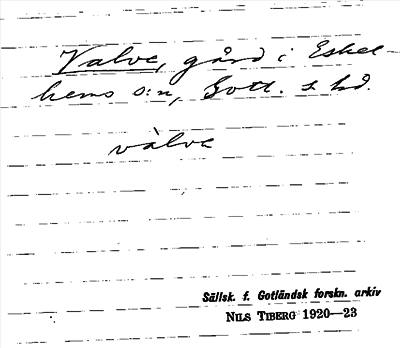 Valve, gård i Eskel-
hems s:n, Gotl. s hd.
vàlve
Sällsk. f. Gotländsk forskn. arkiv
NILS TIBERG 1920—23